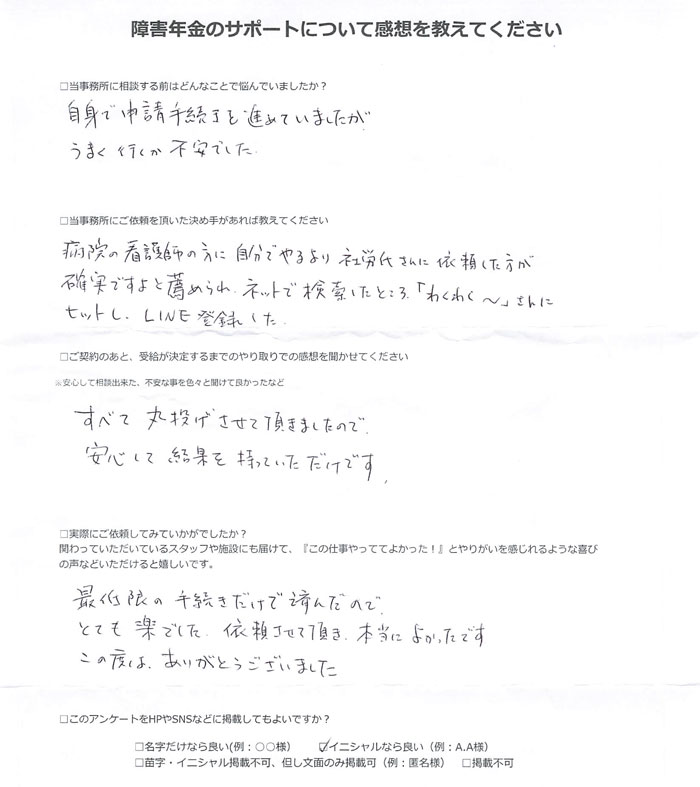 障害年金のサポートについて感想を教えてください
□当事務所に相談する前はどんなことで悩んでいましたか？
自身で申請手続きを進めていましたが
うまく行くか不安でした.
□当事務所にご依頼を頂いた決め手があれば教えてください
病院の看護師の方に自分でやるより社労士さんに依頼した方が
確実ですよと薦められ、ネットで検索したところ、「わくわく～」さんに
ヒットし、LINE登録した.
□ご契約のあと、受給が決定するまでのやり取りでの感想を聞かせてください
※安心して相談出来た、不安な事を色々と聞けて良かったなど
すべて丸投げさせて頂きましたので、
安心して結果を待っていただけです、
□実際にご依頼してみていかがでしたか？
関わっていただいているスタッフや施設にも届けて、『この仕事やっててよかった！』とやりがいを感じれるような喜び
の声などいただけると嬉しいです。
最低限の手続きだけで済んだので、
とても楽でした. 依頼させて頂き、本当によかったです
この度は、ありがとうございました
□このアンケートをHPやSNSなどに掲載してもよいですか？
□名字だけなら良い(例：○○様） ☑イニシャルなら良い（例：A.A様）
□苗字・イニシャル掲載不可、但し文面のみ掲載可（例：匿名様） □掲載不可